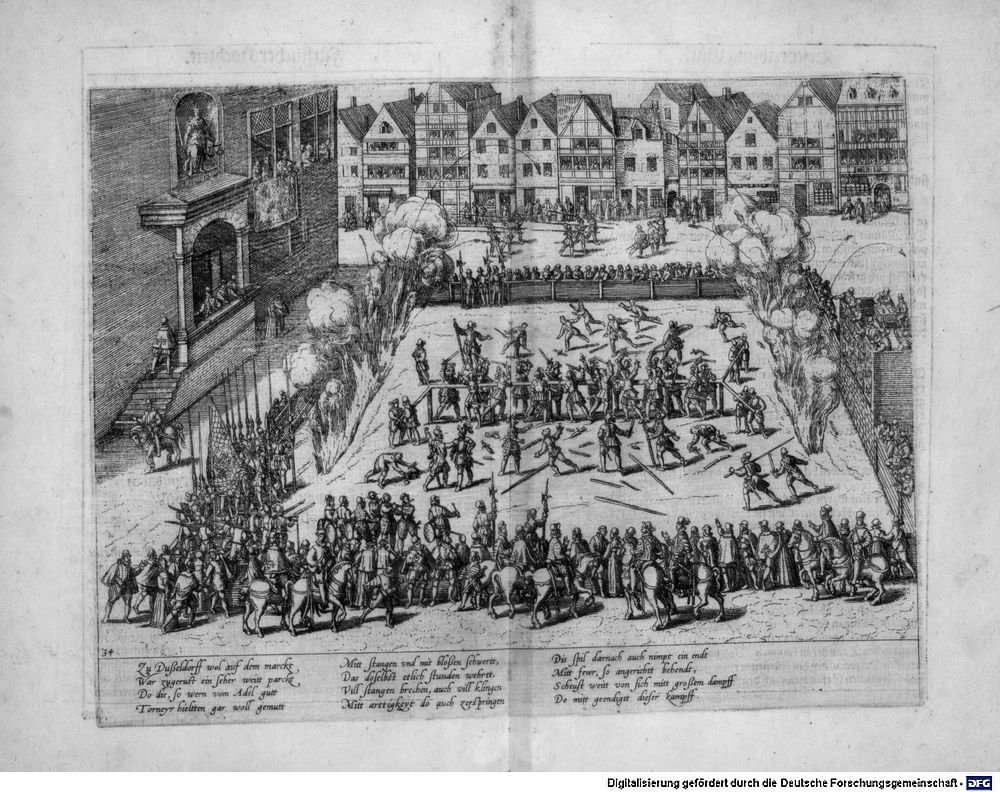 34
Zu Dußeldorff wol auf dem marckt
War zugerust ein seher weitt parckt
Do die, so wern vom Adel gutt
Torneyr hieltten gar woll gemutt
Mitt stangen vnd mit bloßen schwertt,
Das doselbst etlich stunden wehrtt,
Vill stangen brechen, auch vill klingen
Mitt arttigkeyt do auch zerspringen
Dis spil darnach auch nimpt ein endt
Mitt fewr, so angerichtt behendt,
Scheust weitt von sich mitt großem dampff
Do mitt geendigtt dießer kampff
Digitalisierung gefördert durch die Deutsche Forschungsgemeinschaft - DFG